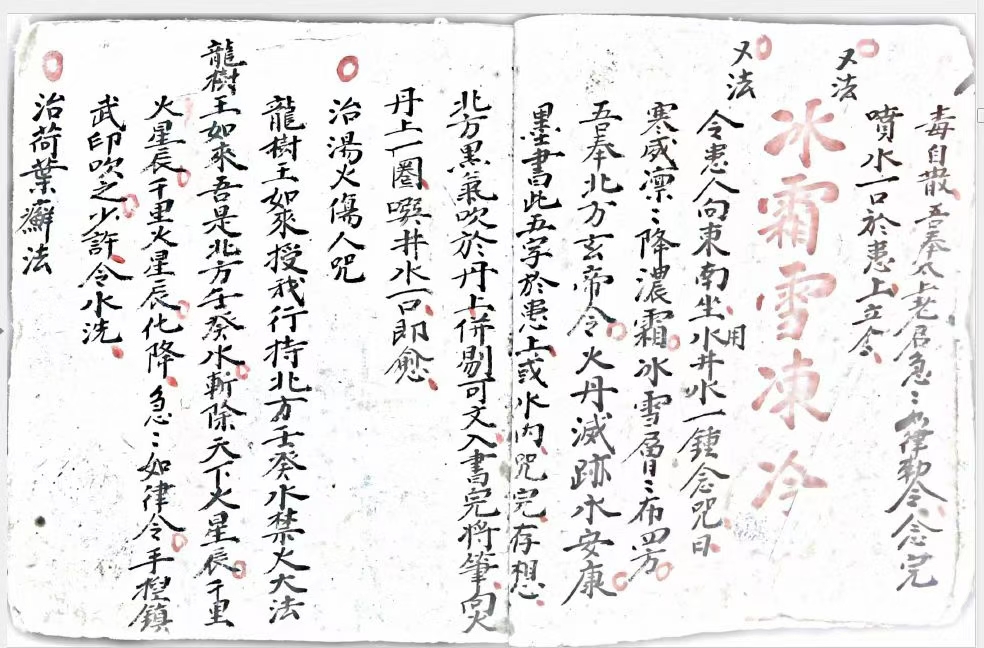 毒自散吾奉太上老君急〻如律勅令念完
噴水一口於患上立令
又法
冰霜雪凍冷
又法
令患人向東南坐水用井水一鍾念咒曰
寒威凛〻降濃霜冰雪層〻布四方
五奉北方玄帝令火丹滅跡永安康
墨書此五字於患上或水内咒完存想
北方黒氣吹於丹上併剔可文入書完將筆向火
丹上一圈噀井水一口即愈
治湯火傷人咒
龍樹王如來授我行持北方壬癸水禁火大法
龍樹王如來吾是北方壬癸水斬除天下火星辰千里
火星辰千里火星辰化降急〻如律令手揑鎮
武印吹之少許令水洗
治荷葉癬法